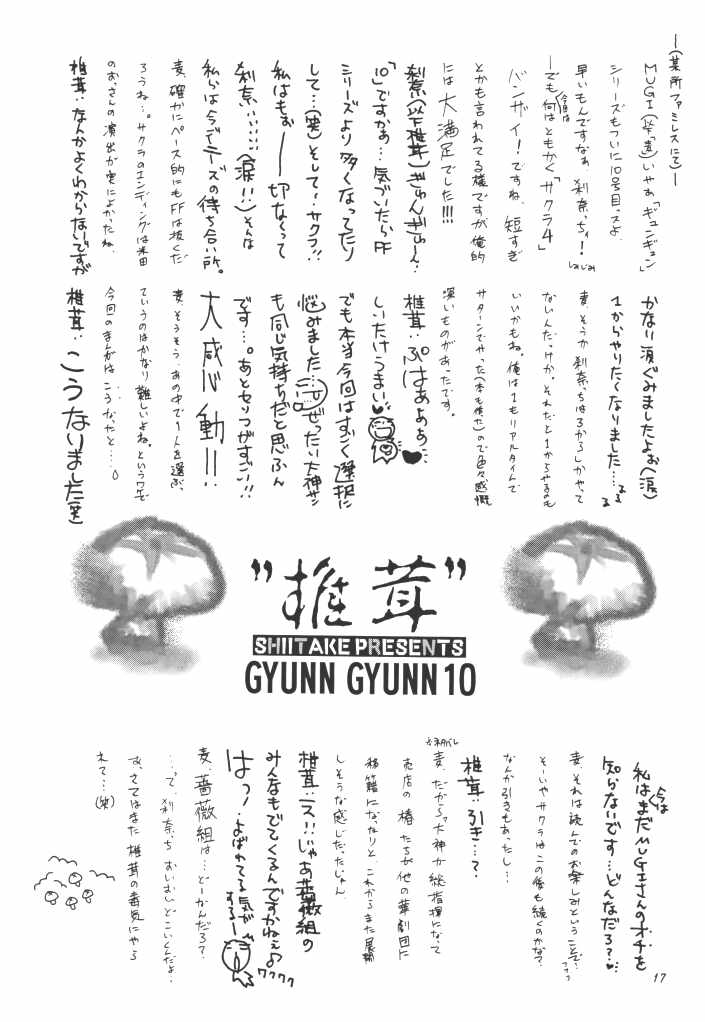 ―(某所ファミレスにて)―
MUGI(以下麦)いやぁ「ギュンギュン」
シリーズもついに10号目っスよ、
早いもんですなぁ 刹奈っち！
しみじみ
―でも今回は何はともかく「サクラ4」
バンザイ！ですね、短すぎ
とかも言われてる様ですが俺的
には大満足でした!!!
刹奈(以下椎茸)ぎゅんぎゅ～ん…
「10」ですかぁ…気づいたらFF
シリーズより多くなってたり
して…(笑)そして！サクラ!!
私はもぉ――切なくって
刹奈い……(涙!!)そんな
私らは今でテーズの待ち合い所。
麦、確かにペース的にもFFは抜くだ
ろうね…。サクラのエンディングは米田
のおっさんの演出が実によかったね、
椎茸：なんかよくわからないですが
かなり涙ぐみましたよぉ(涙)
1からやりたくなりました…
るるる
麦、そうか刹奈っちは3からしかやって
ないんだっけか。それだと1からやるのも
いいかもね。俺は1もリアルタイムで
サターンでやった(本も作った)ので色々感慨
深いものがあったです。
椎茸：ぷはぁぁぁ…
しいたけうまい♥
でも本当今回はすごく選択に
悩みました…ぜったい大神サン
も同じ気持ちだと思ふん
です…。あとセリフがすごい!!
大感動!!
麦、そうそう、あの中で1人を選ぶ、
ていうのはかなり難しいよね。というワケで
今回のまんがはこうなったと…。
椎茸：こうなりました(笑)
”椎茸”
SHIITAKE PRESENTS
GYUNN GYUNN 10
私は今はまだMUGIさんのオチを
知らないです…どんなだろ？…♥
麦、それは読んでのお楽しみということで…フフフ
そーいやサクラはこの後も続くのかな？
なんか引きもあったし…
椎茸：引き…？
※ネタバレ
麦、だからっ大神が総指揮になって
売店の椿ちゃんたちが他の華劇団に
移籍になったりと これからまた展開
しそうな感じだったじゃん。
椎茸：ス!!じゃあ薔薇組の
みんなもでてくるんですかねぇ♪
ワクワク
はっ！…よばれてる気が
するー
麦、薔薇組は…どーかんだろ？
…って、刹奈っち おいおいどこいくんだよ…
む、さてはまた椎茸の毒気にやら
れて…(笑)
17